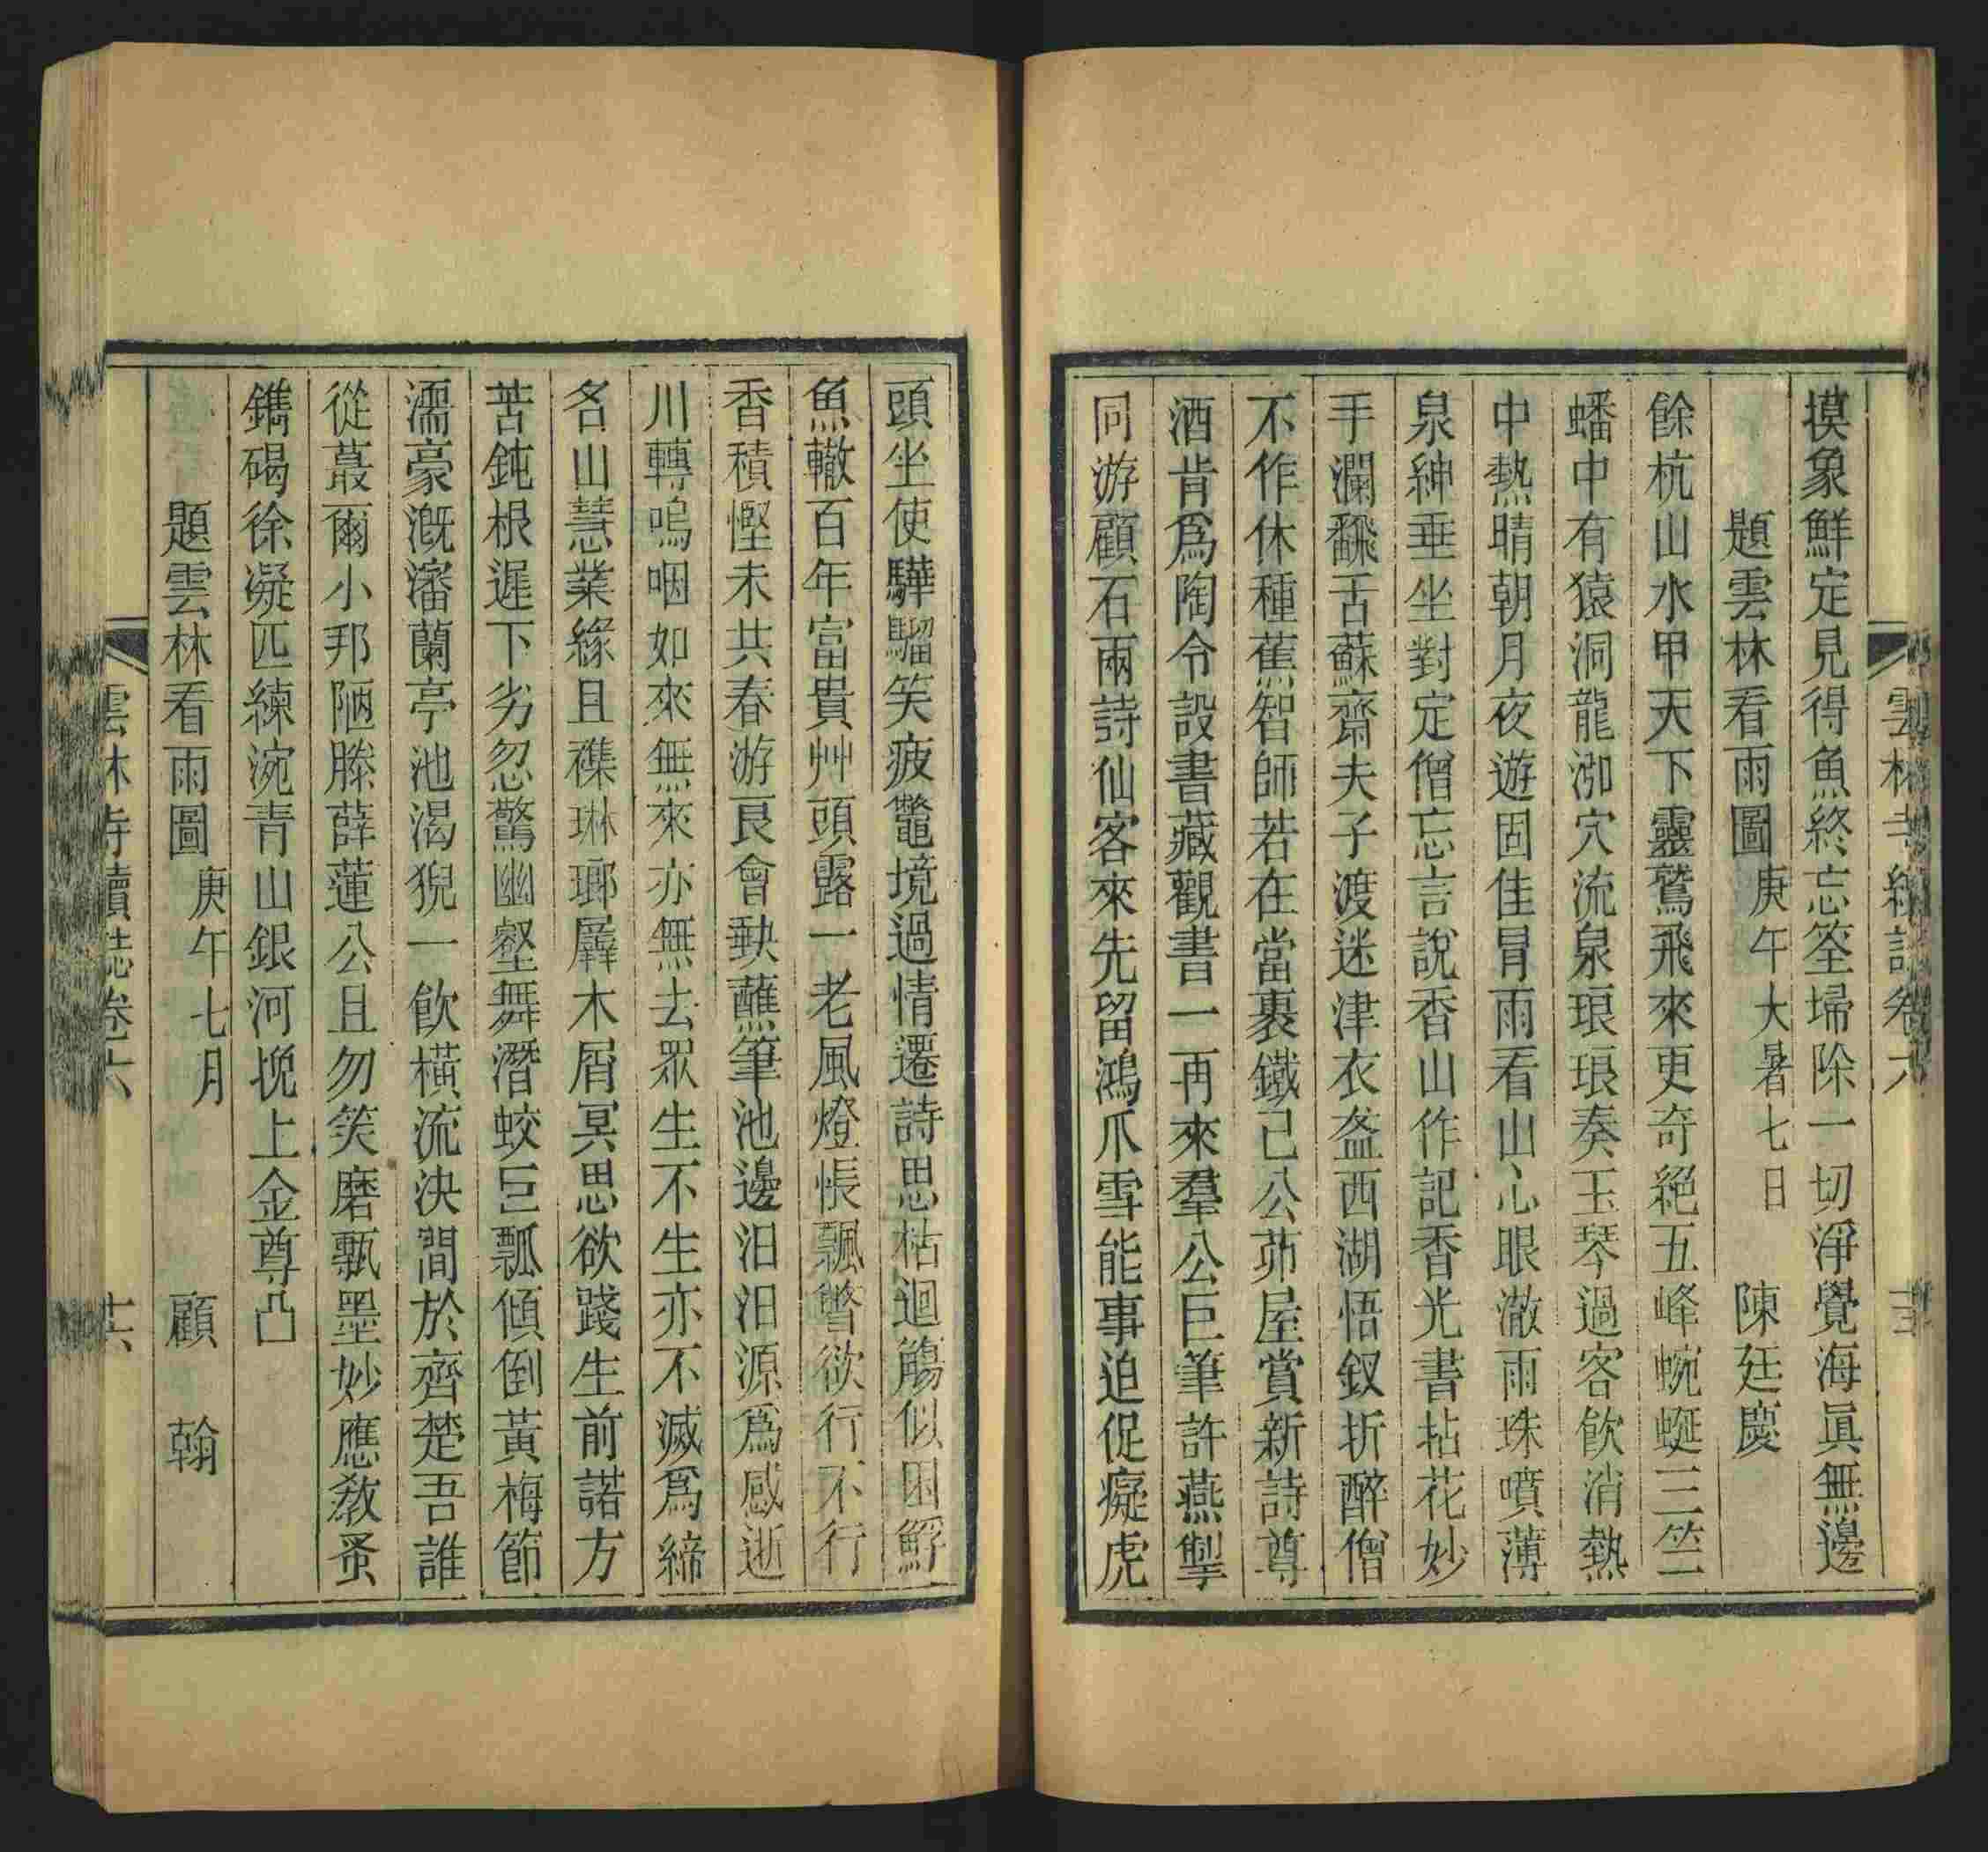 雲林寺續誌卷六
摸象鮮定見得魚終忘筌埽除一切淨覺海眞無邊
題雲林看雨圖 庚午大暑七日 陳廷慶
餘杭山水甲天下靈鷲飛來更奇絕五峰蜿蜒三竺
蟠中有猿洞龍泖穴流泉琅琅奏玉琴過客飲消熱
中熱晴朝月夜遊固佳冒雨看山心眼澈雨珠噴薄
泉紳垂坐對定僧忘言說香山作記香光書拈花妙
手瀾翻舌蘇齋夫子渡迷津衣盋西湖悟釵折醉僧
不作休種蕉智師若在當裹鐵己公茆屋賞新詩尊
酒肯爲陶令設書藏觀書一再來羣公巨筆許燕掣
同游顧石兩詩仙客來先留鴻爪雪能事迫促癡虎
頭坐使驊騮笑疲鼈境過情遷詩思枯迴觴似困鰕
魚轍百年富貴艸頭露一老風燈悵飄瞥欲行不行
香積慳未共春游良會缺蘸筆池邊汨汨源爲感逝
川轉嗚咽如來無來亦無去眾生不生亦不滅爲締
名山慧業緣且襍琳瑯羼木屑冥思欲踐生前諾方
苦鈍根遲下劣忽驚幽壑舞潛蛟巨瓢傾倒黃梅節
濡豪漑瀋蘭亭池渴猊一飲橫流決間於齊楚吾誰
從蕞爾小邦陋滕薛蓮公且勿笑磨甎墨妙應敎蚤
鐫碣徐凝匹練涴青山銀河挽上金尊凸
題雲林看雨圖 庚午七月 顧翰
雲林寺續誌卷六 十六